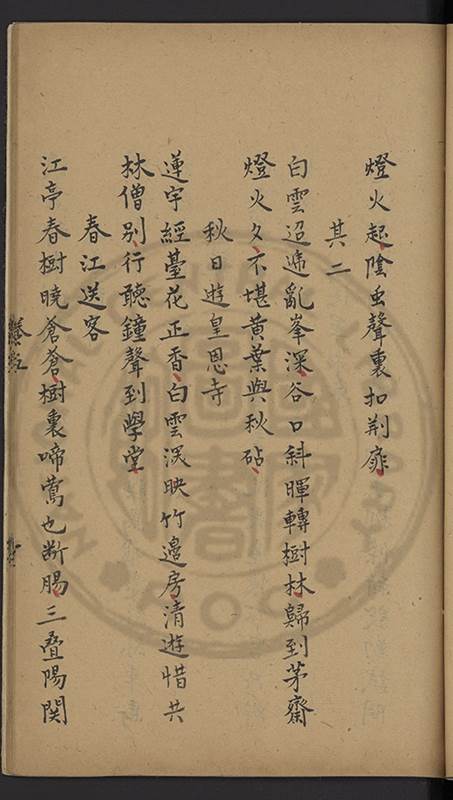 燈火起陰虫聲裏扣荆扉
其二
白雲迢遞亂峯深谷口斜暉轉樹林歸到茅齋
燈火夕不堪黄葉與秋砧
秋日遊皇恩寺
蓮宇經臺花正香白雲深映竹邊房清遊惜共
林僧別行聽鐘聲到學堂
春江送客
江亭春樹曉蒼蒼樹裏啼鶯也断腸三疊陽関